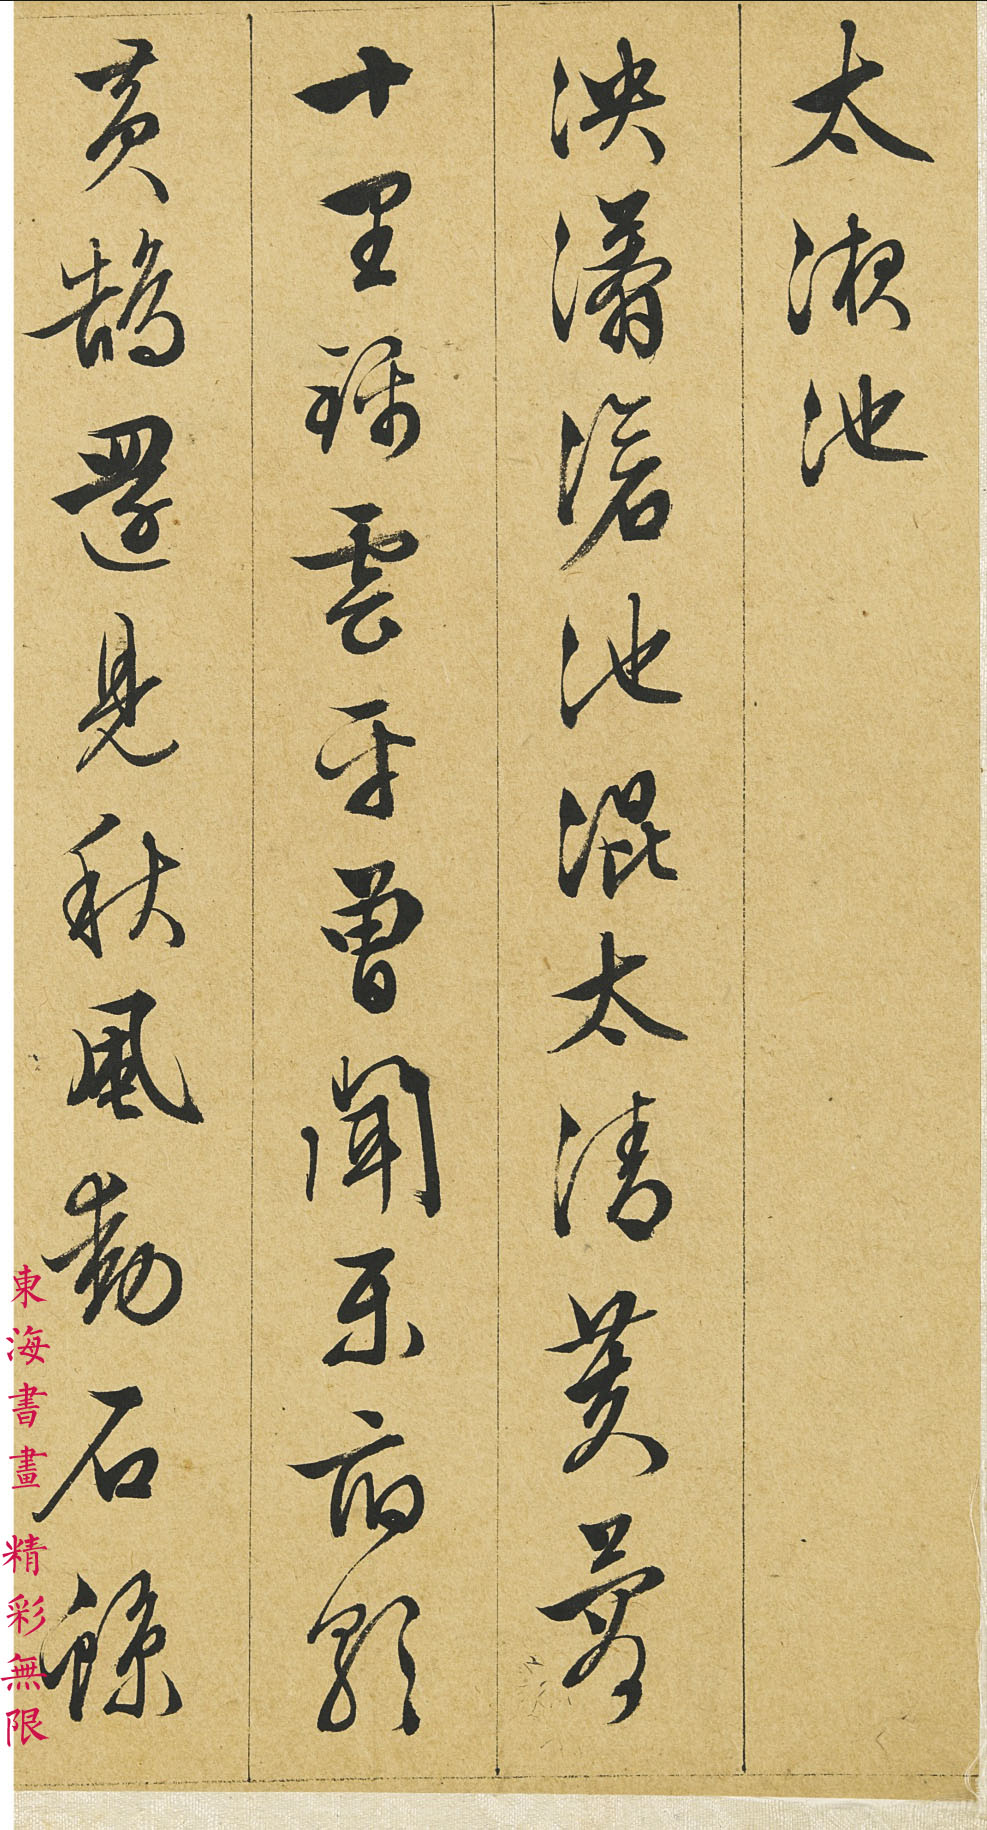 太液池
泱漭滄池混太清芙蓉
十里錦雲平曾聞樂府歌
黃鵠還見秋風動石鯨
東海書畫 精彩無限